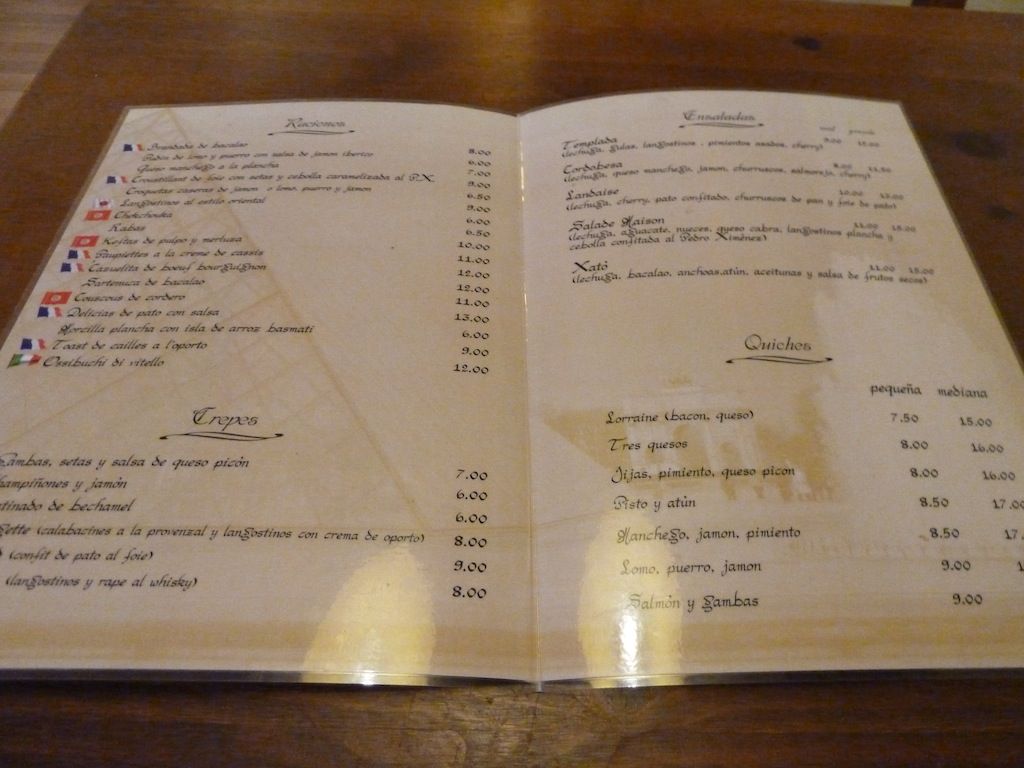 Raciones
Brandada de bacalao 8.00
Rulos de lomo y puerro con salsa de jamon iberico 6.00
Queso manchego a la plancha 7.00
Croustillant de foie con setas y cebolla caramelizada al P.X. 9.00
Croquetas caseras de jamon o lomo, puerro y jamon 6.50
Langostinos al estilo oriental 9.00
Chokchouka 6.00
Kabas 6.50
Keftas de pulpo y merluza 10.00
Paupiettes a la creme de cassis 11.00
Cazuelita de boeuf bourguignon 12.00
Sartenuca de bacalao 12.00
Couscous de cordero 11.00
Delicias de pato con salsa 13.00
Morcilla plancha con isla de arroz basmati 6.00
Toast de cailles a l'oporto 9.00
Ossibuchi di vitello 12.00
Crepes
Gambas, setas y salsa de queso picón 7.00
hampiñones y jamón 6.00
tinado de bechamel 6.00
ette (calabacines a la provenzal y langostinos con crema de oporto) 8.00
(confit de pato al foie) 9.00
(langostinos y rape al whisky) 8.00
Ensaladas
Templada 9.00
(lechuga, gulas, langostinos, pimientos asados, cherry)
Cordobesa 8.00 11.50
(lechuga, queso manchego, jamon, churruscos, salmorejo, cherry)
Landaise 10.00 15.00
(lechuga, cherry, pato confitado, churruscos de pan y foie de pato)
Salade Maison 11.00 15.00
(lechuga, aguacate, nueces, queso cabra, langostinos plancha y
cebolla confitada al Pedro Ximénez)
Xató 11.00 15.00
(lechuga, bacalao, anchoas, atún, aceitunas y salsa de frutos secos)
Quiches
pequeña mediana
Lorraine (bacon, queso) 7.50 15.00
Tres quesos 8.00 16.00
Jijas, pimiento, queso picon 8.00 16.00
Pisto y atún 8.50 17.00
Manchego, jamon, pimiento 8.50 17.
Lomo, puerro, jamon 9.00 1
Salmón y gambas 9.00